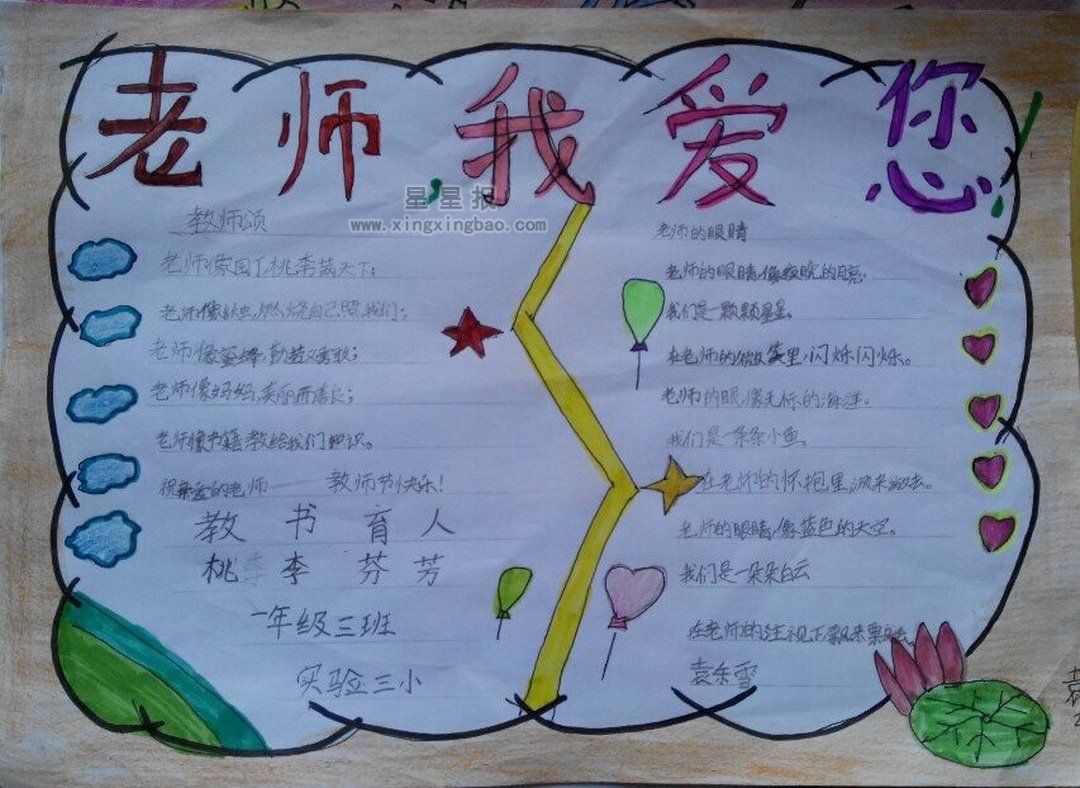 老师,我爱您
星星报
www.xingxingbao.com
教师颂
老师像园丁,桃李满天下;
老师像蜡烛,燃烧自己照我们;
老师像蜜蜂,勤劳又勇敢;
老师像妈妈,美丽而善良;
老师像书籍,教给我们知识。
祝亲爱的老师 教师节快乐!
教书育人
桃李芬芳
一年级三班
实验三小
老师的眼睛
老师的眼睛,像夜晚的月亮.
我们是一颗颗星星.
在老师的微笑里,闪烁闪烁。
老师的眼,像无标的海洋。
我们是一条条小鱼.
在老师的怀抱里游来游去。
老师的眼睛,像蓝色的天空.
我们是一朵朵白云
在老师的注视下飘来飘去.
袁东雪
袁